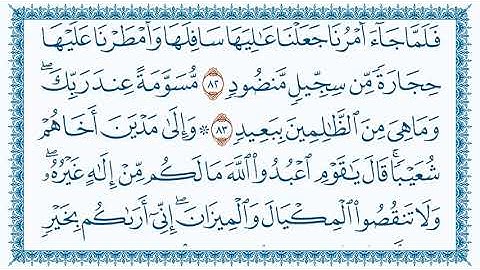 فَلَمَّا جَآءَ أَمْرُنَا جَعَلْنَا عَٰلِيَهَا سَافِلَهَا وَأَمْطَرْنَا عَلَيْهَا
حِجَارَةً مِّن سِجِّيلٍ مَّنضُودٍ ٨٢ مُّسَوَّمَةً عِندَ رَبِّكَۖ
وَمَا هِيَ مِنَ ٱلظَّٰلِمِينَ بِبَعِيدٍ ٨٣ ۞ وَإِلَىٰ مَدْيَنَ أَخَاهُمْ
شُعَيْبًاۚ قَالَ يَٰقَوْمِ ٱعْبُدُوا۟ ٱللَّهَ مَا لَكُم مِّنْ إِلَٰهٍ غَيْرُهُۥۖ
وَلَا تَنقُصُوا۟ ٱلْمِكْيَالَ وَٱلْمِيزَانَۖ إِنِّيٓ أَرَىٰكُم بِخَيْرٍ